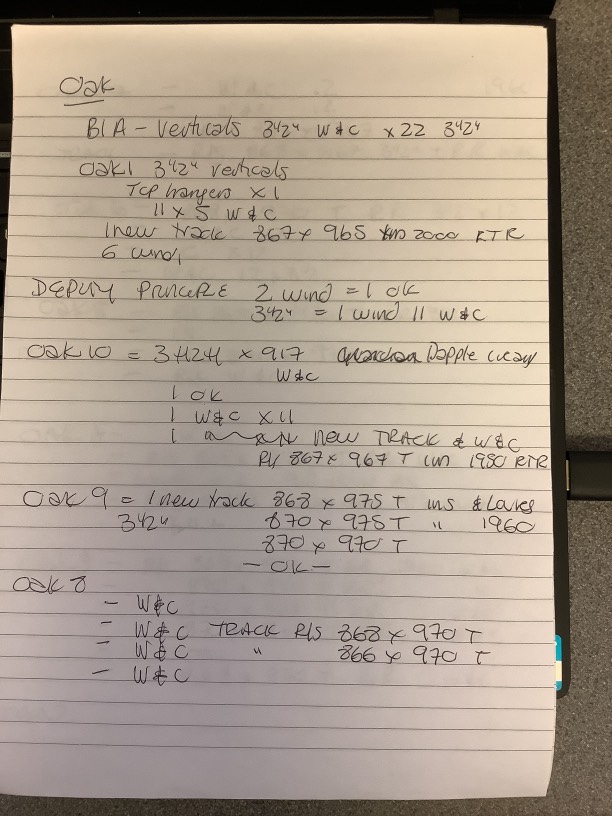 Oak
BIA - Verticals 3424 W&C x22 3424
Oak 1 3424 verticals
Top hangers x 1
11 x 5 W&C
1 new track 867 x 965 2000 RTR
6 wind,
DEPUTY PRINCIPLE 2 wind = 1 OK
3424 = 1 wind 11 W&C
Oak 10 = 34241 x 917 Dapple cream
W&C
1 OK
1 W&C x 11
1 new TRACK & W&C
R/S 867 x 967 T 1980 RTR
Oak 9 = 1 new track 868 x 975 T ins
3424 870 x 975 T " 1960
870 x 970 T
- OK -
Oak 8
- W&C
- W&C TRACK R/S 868 x 970 T
- W&C " 866 x 970 T
- W&C